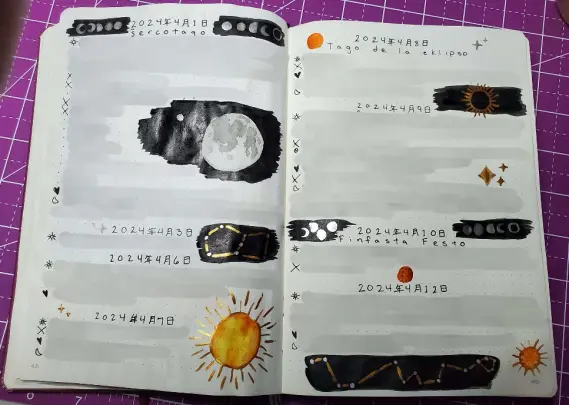 2024年4月1日
Sercotago
2024年4月3日
2024年4月6日
2024年4月7日
2024年4月8日
Tago de la eklipso
2024年4月9日
2024年4月10日
Finfasta Festo
2024年4月12日